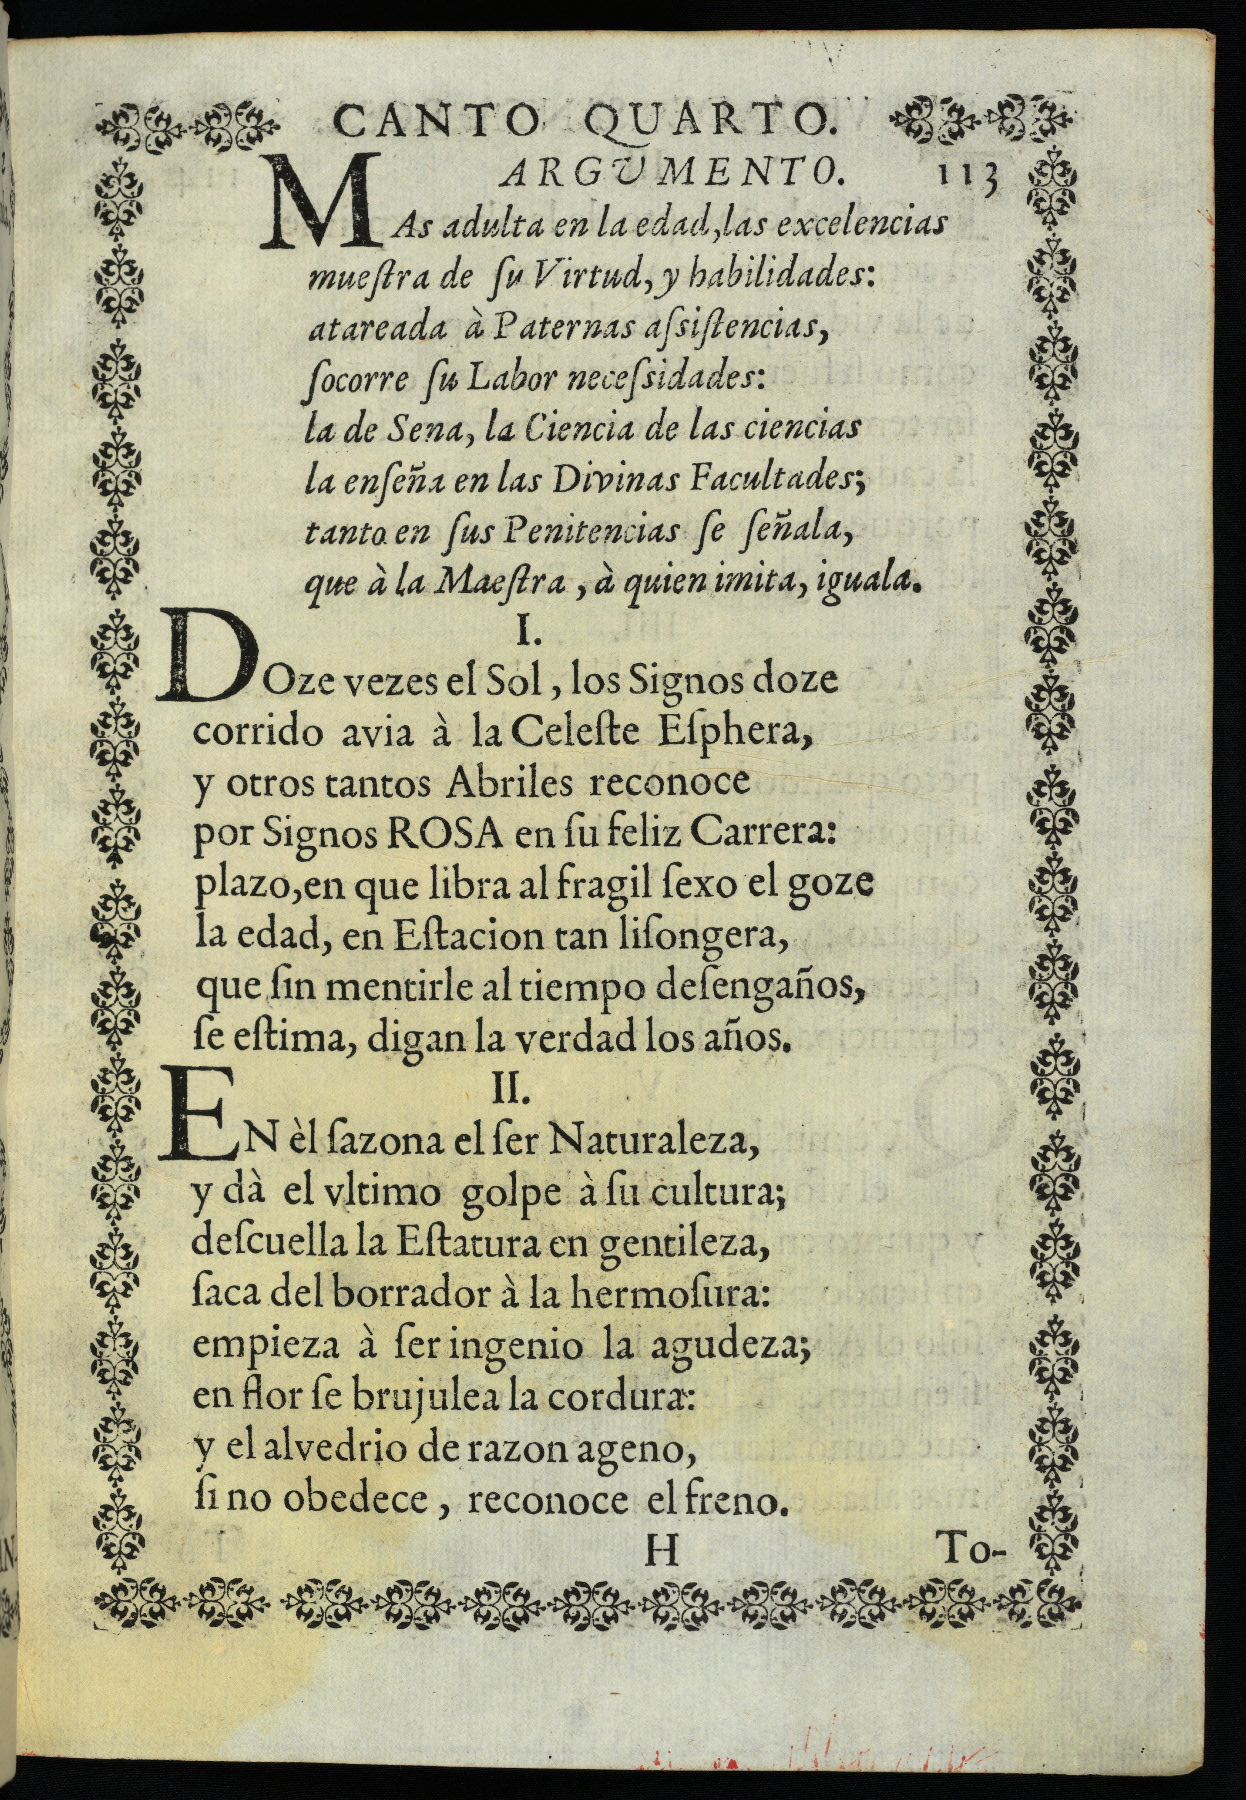 CANTO QUARTO.
ARGUMENTO. 113
MAs adulta en la edad, las excelencias
mueſtra de ſu Virtud, y habilidades:
atareada à Paternas aſsiſtencias,
ſocorre ſu Labor neceſsidades:
la de Sena, la Ciencia de las ciencias
la enſeña en las Divinas Facultades;
tanto en ſus Penitencias ſe ſeñala,
que à la Maeſtra, à quien imita, iguala.
I.
DOze vezes el Sol, los Signos doze
corrido avia à la Celeſte Eſphera,
y otros tantos Abriles reconoce
por Signos ROSA en ſu feliz Carrera:
plazo, en que libra al fragil ſexo el goze
la edad, en Eſtacion tan liſongera,
que ſin mentirle al tiempo deſengaños,
ſe eſtima, digan la verdad los años.
II.
EN èl ſazona el ſer Naturaleza,
y dà el vltimo golpe à ſu cultura;
deſcuella la Eſtatura en gentileza,
ſaca del borrador à la hermoſura:
empieza à ſer ingenio la agudeza;
en flor ſe brujulea la cordura:
y el alvedrio de razon ageno,
ſi no obedece, reconoce el freno.
H To-